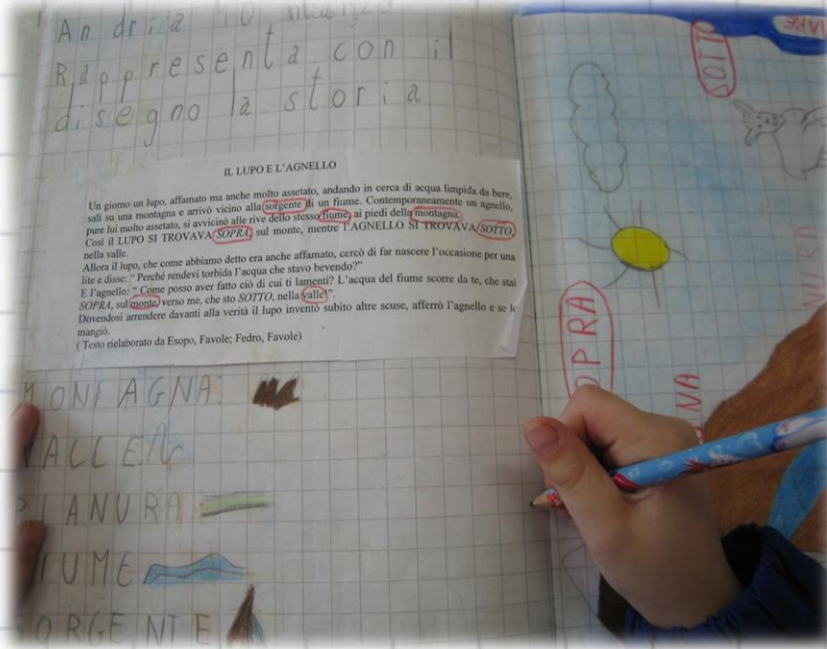 Andria 10 marzo
Rappresenta con il
disegno la storia
IL LUPO E L'AGNELLO
Un giorno un lupo, affamato ma anche molto assetato, andando in cerca di acqua limpida da bere,
salì su una montagna e arrivò vicino alla sorgente di un fiume. Contemporaneamente un agnello,
pure lui molto assetato, si avvicinò alle rive dello stesso fiume, ai piedi della montagna.
Così il LUPO SI TROVAVA SOPRA, sul monte, mentre l'AGNELLO SI TROVAVA SOTTO,
nella valle.
Allora il lupo, che come abbiamo detto era anche affamato, cercò di far nascere l'occasione per una
lite e disse: “ Perché rendevi torbida l'acqua che stavo bevendo?”
E l'agnello: “ Come posso aver fatto ciò di cui ti lamenti? L'acqua del fiume scorre da te, che stai
SOPRA, sul monte, verso me, che sto SOTTO, nella valle!”.
Dovendosi arrendere davanti alla verità il lupo inventò subito altre scuse, afferrò l'agnello e se lo
mangiò.
( Testo rielaborato da Esopo, Favole; Fedro, Favole)
MONTAGNA
VALLE
PIANURA
FIUME
SORGENTE
SOTTO
OPRA